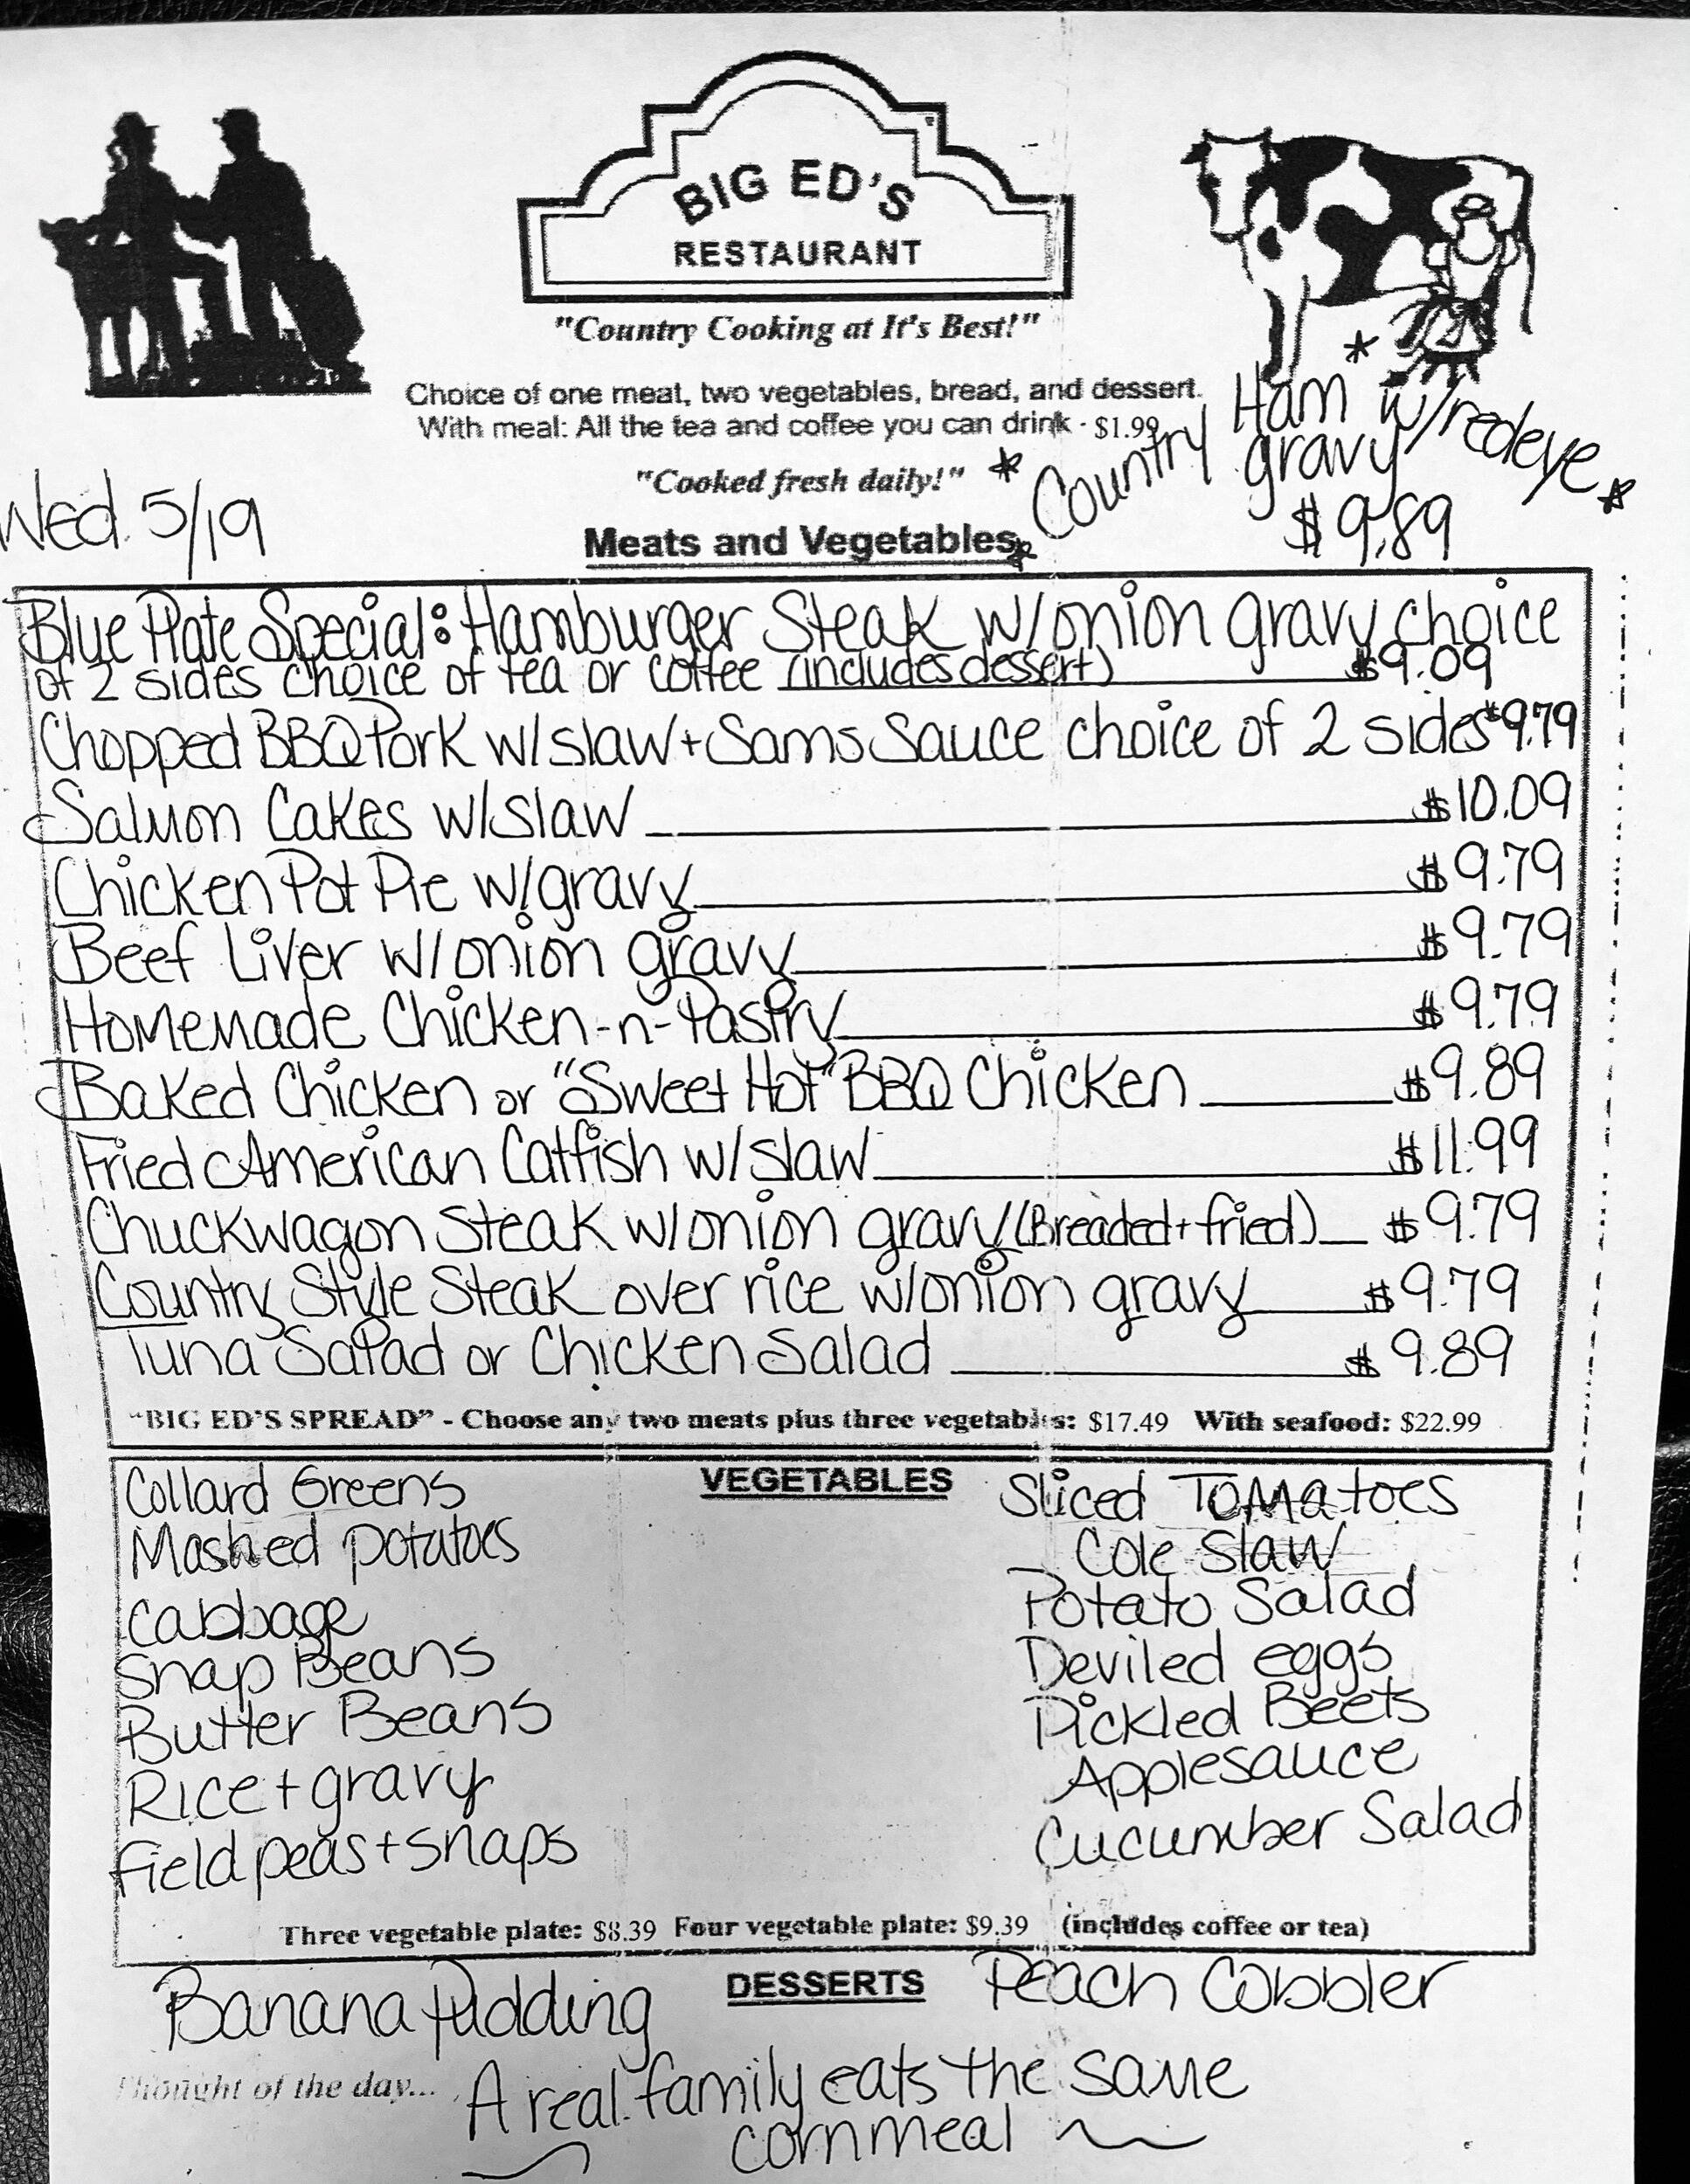 BIG ED'S
RESTAURANT
"Country Cooking at It's Best!"
Choice of one meat, two vegetables, bread, and dessert.
With meal: All the tea and coffee you can drink - $1.99
"Cooked fresh daily!"
* Country Ham * w/redeye *
gravy
$9.89
Wed. 5/19
Meats and Vegetables
Blue Plate Special: Hamburger Steak w/onion gravy choice
of 2 sides choice of tea or coffee (includes dessert) $9.09
Chopped BBQ Pork w/slaw + Sams Sauce choice of 2 sides $9.79
Salmon Cakes w/slaw $10.09
Chicken Pot Pie w/gravy $9.79
Beef Liver w/onion gravy $9.79
Homemade Chicken-n-Pastry $9.79
Baked Chicken or "Sweet Hot" BBQ Chicken $9.89
Fried American Catfish w/slaw $11.99
Chuckwagon Steak w/onion gravy (Breaded + fried) $9.79
Country Style Steak over rice w/onion gravy $9.79
Tuna Salad or Chicken Salad $9.89
"BIG ED'S SPREAD" - Choose any two meats plus three vegetables: $17.49 With seafood: $22.99
VEGETABLES
Collard Greens
Mashed potatoes
Cabbage
Snap Beans
Butter Beans
Rice + gravy
Field peas + snaps
Sliced Tomatoes
Cole Slaw
Potato Salad
Deviled eggs
Pickled Beets
Applesauce
Cucumber Salad
Three vegetable plate: $8.39 Four vegetable plate: $9.39 (includes coffee or tea)
DESSERTS
Banana Pudding
Peach Cobbler
Thought of the day...
A real family eats the same
cornmeal